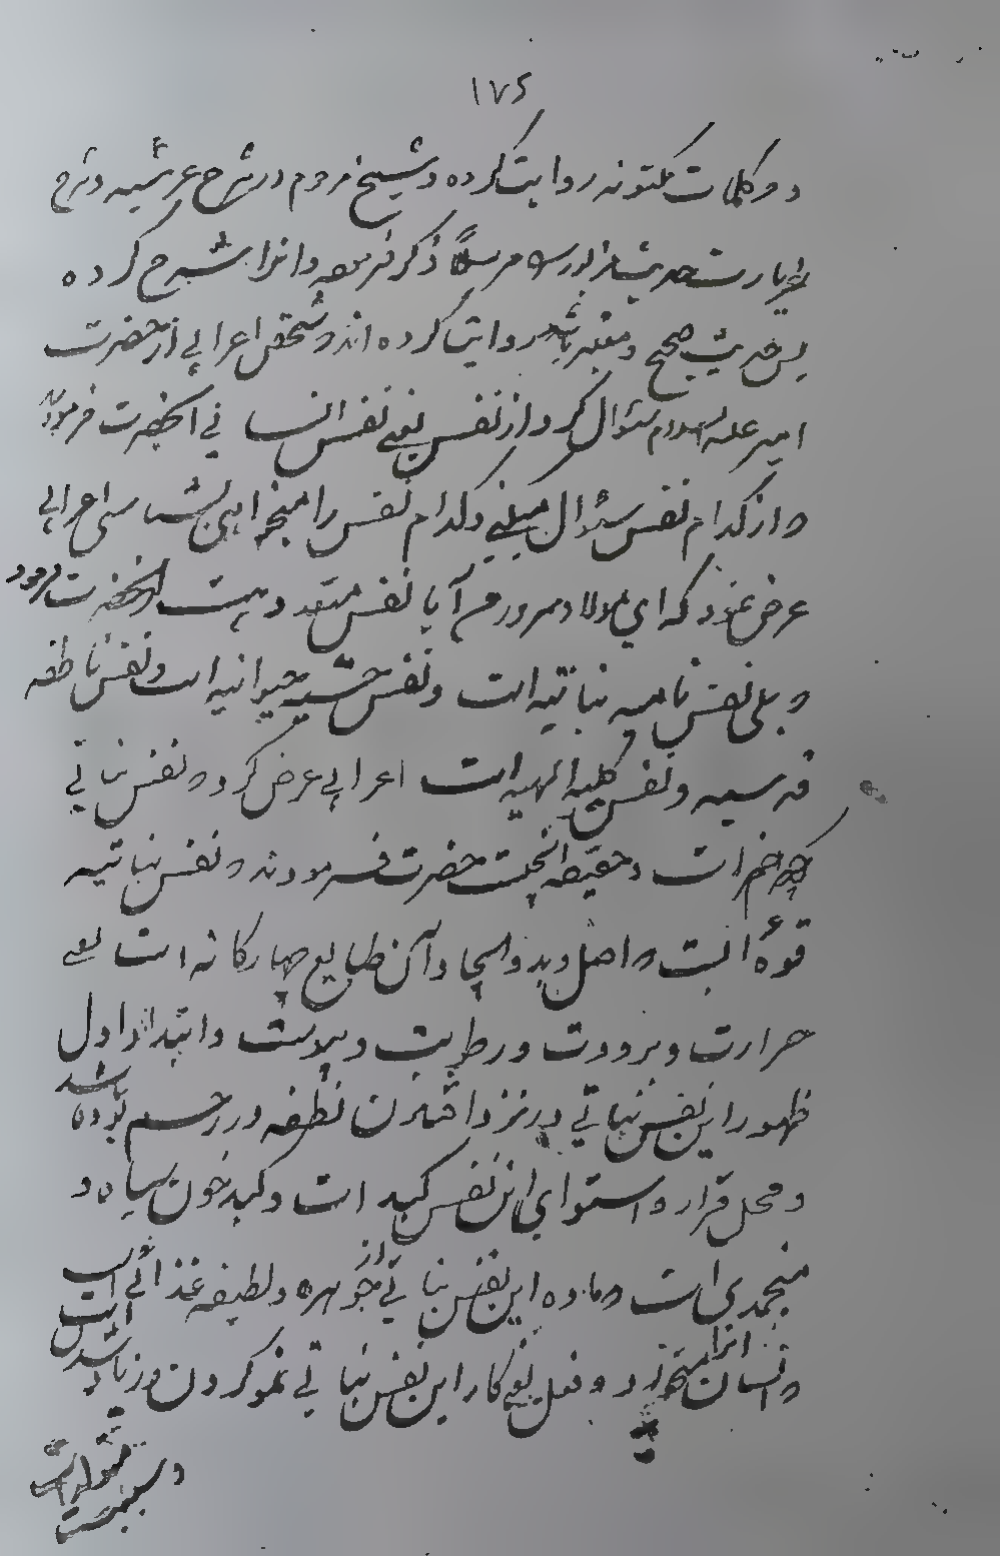 ۱۷۶
در کلمات مکنونه روایت کرده و شیخ مرحوم در شرح عرشیه و شرح
زیارت حدیث مزبور را مرسلاً ذکر فرموده و انرا شرح کرده
پس حدیث صحیح و معتبر باشد روایت کرده اند و شخص اعرابی از حضرت
امیر علیه السلام سئوال کرد از نفس یعنی نفس انسانی انحضرت فرمود
و از کدام نفس سئوال میکنی و کدام نفس را میخواهی بشناسی اعرابی
عرض نمود که ای مولا و سرور من آیا نفس متعدد هست انحضرت فرمود
و بلی نفس نامیه نباتیه است و نفس حسیه حیوانیه است و نفس ناطقه
قدسیه و نفس کلیه الهیه است اعرابی عرض کرد و نفس نباتی
چه است و حقیقه انچیست حضرت فرمودند و نفس نباتیه
قوهٔ است و اصل و بدو ایجاد آن طبایع چهارکانه است یعنی
حرارت و برودت و رطوبت و یبوست و ابتدا و اول
ظهور این نفس نباتی در نزد افتادن نطفه در رحم بوده باشد
و محل قرار و استوای این نفس کبد است و کبد خون سیاه و
منجمدی است و ماده این نفس نباتی از جوهره و لطیفه غذائی است
و انسان انرا میخورد و فعل یعنی کار این نفس نباتی نمو کردن و زیاد شدن است
و سبب